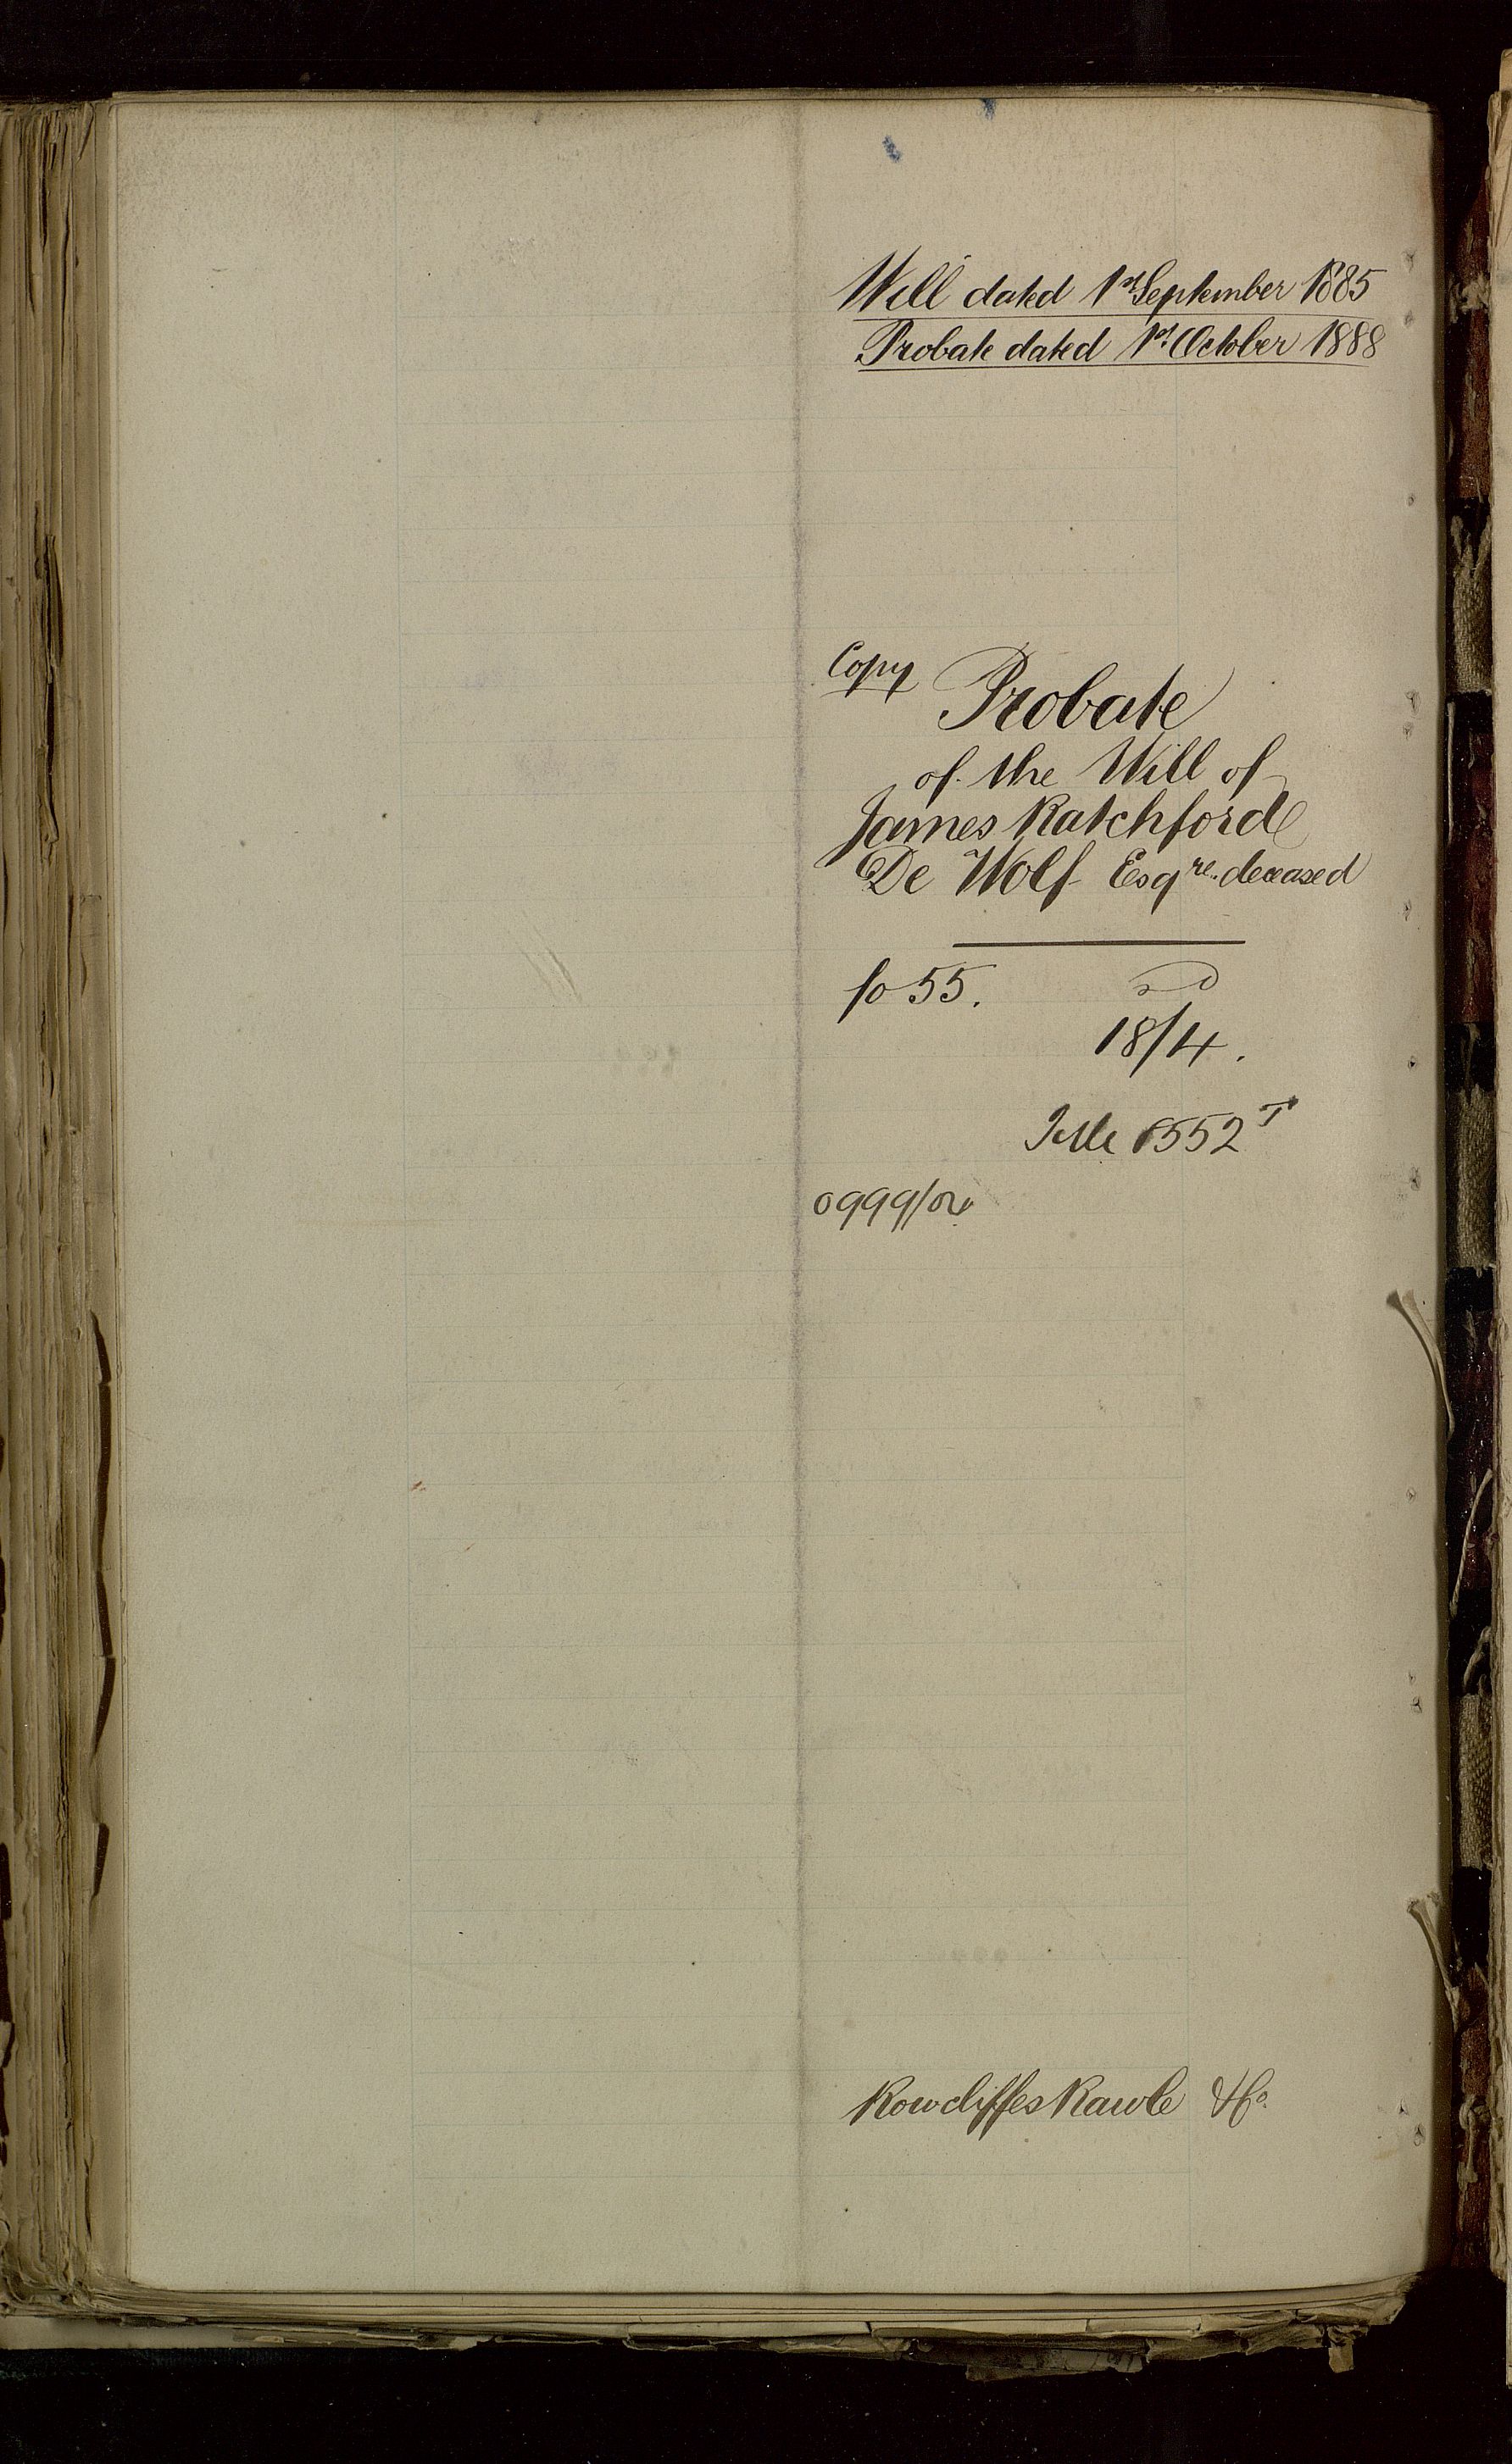 Will dated 1st September 1885
Probate dated 1st October 1888
Copy
Probate
of the Will of
James Ratchford
De Wolf Esqre. deceased
fo 55.
s D
18/4.
Title 8552 T
0999/04
Rowcliffes Rawle & Co.